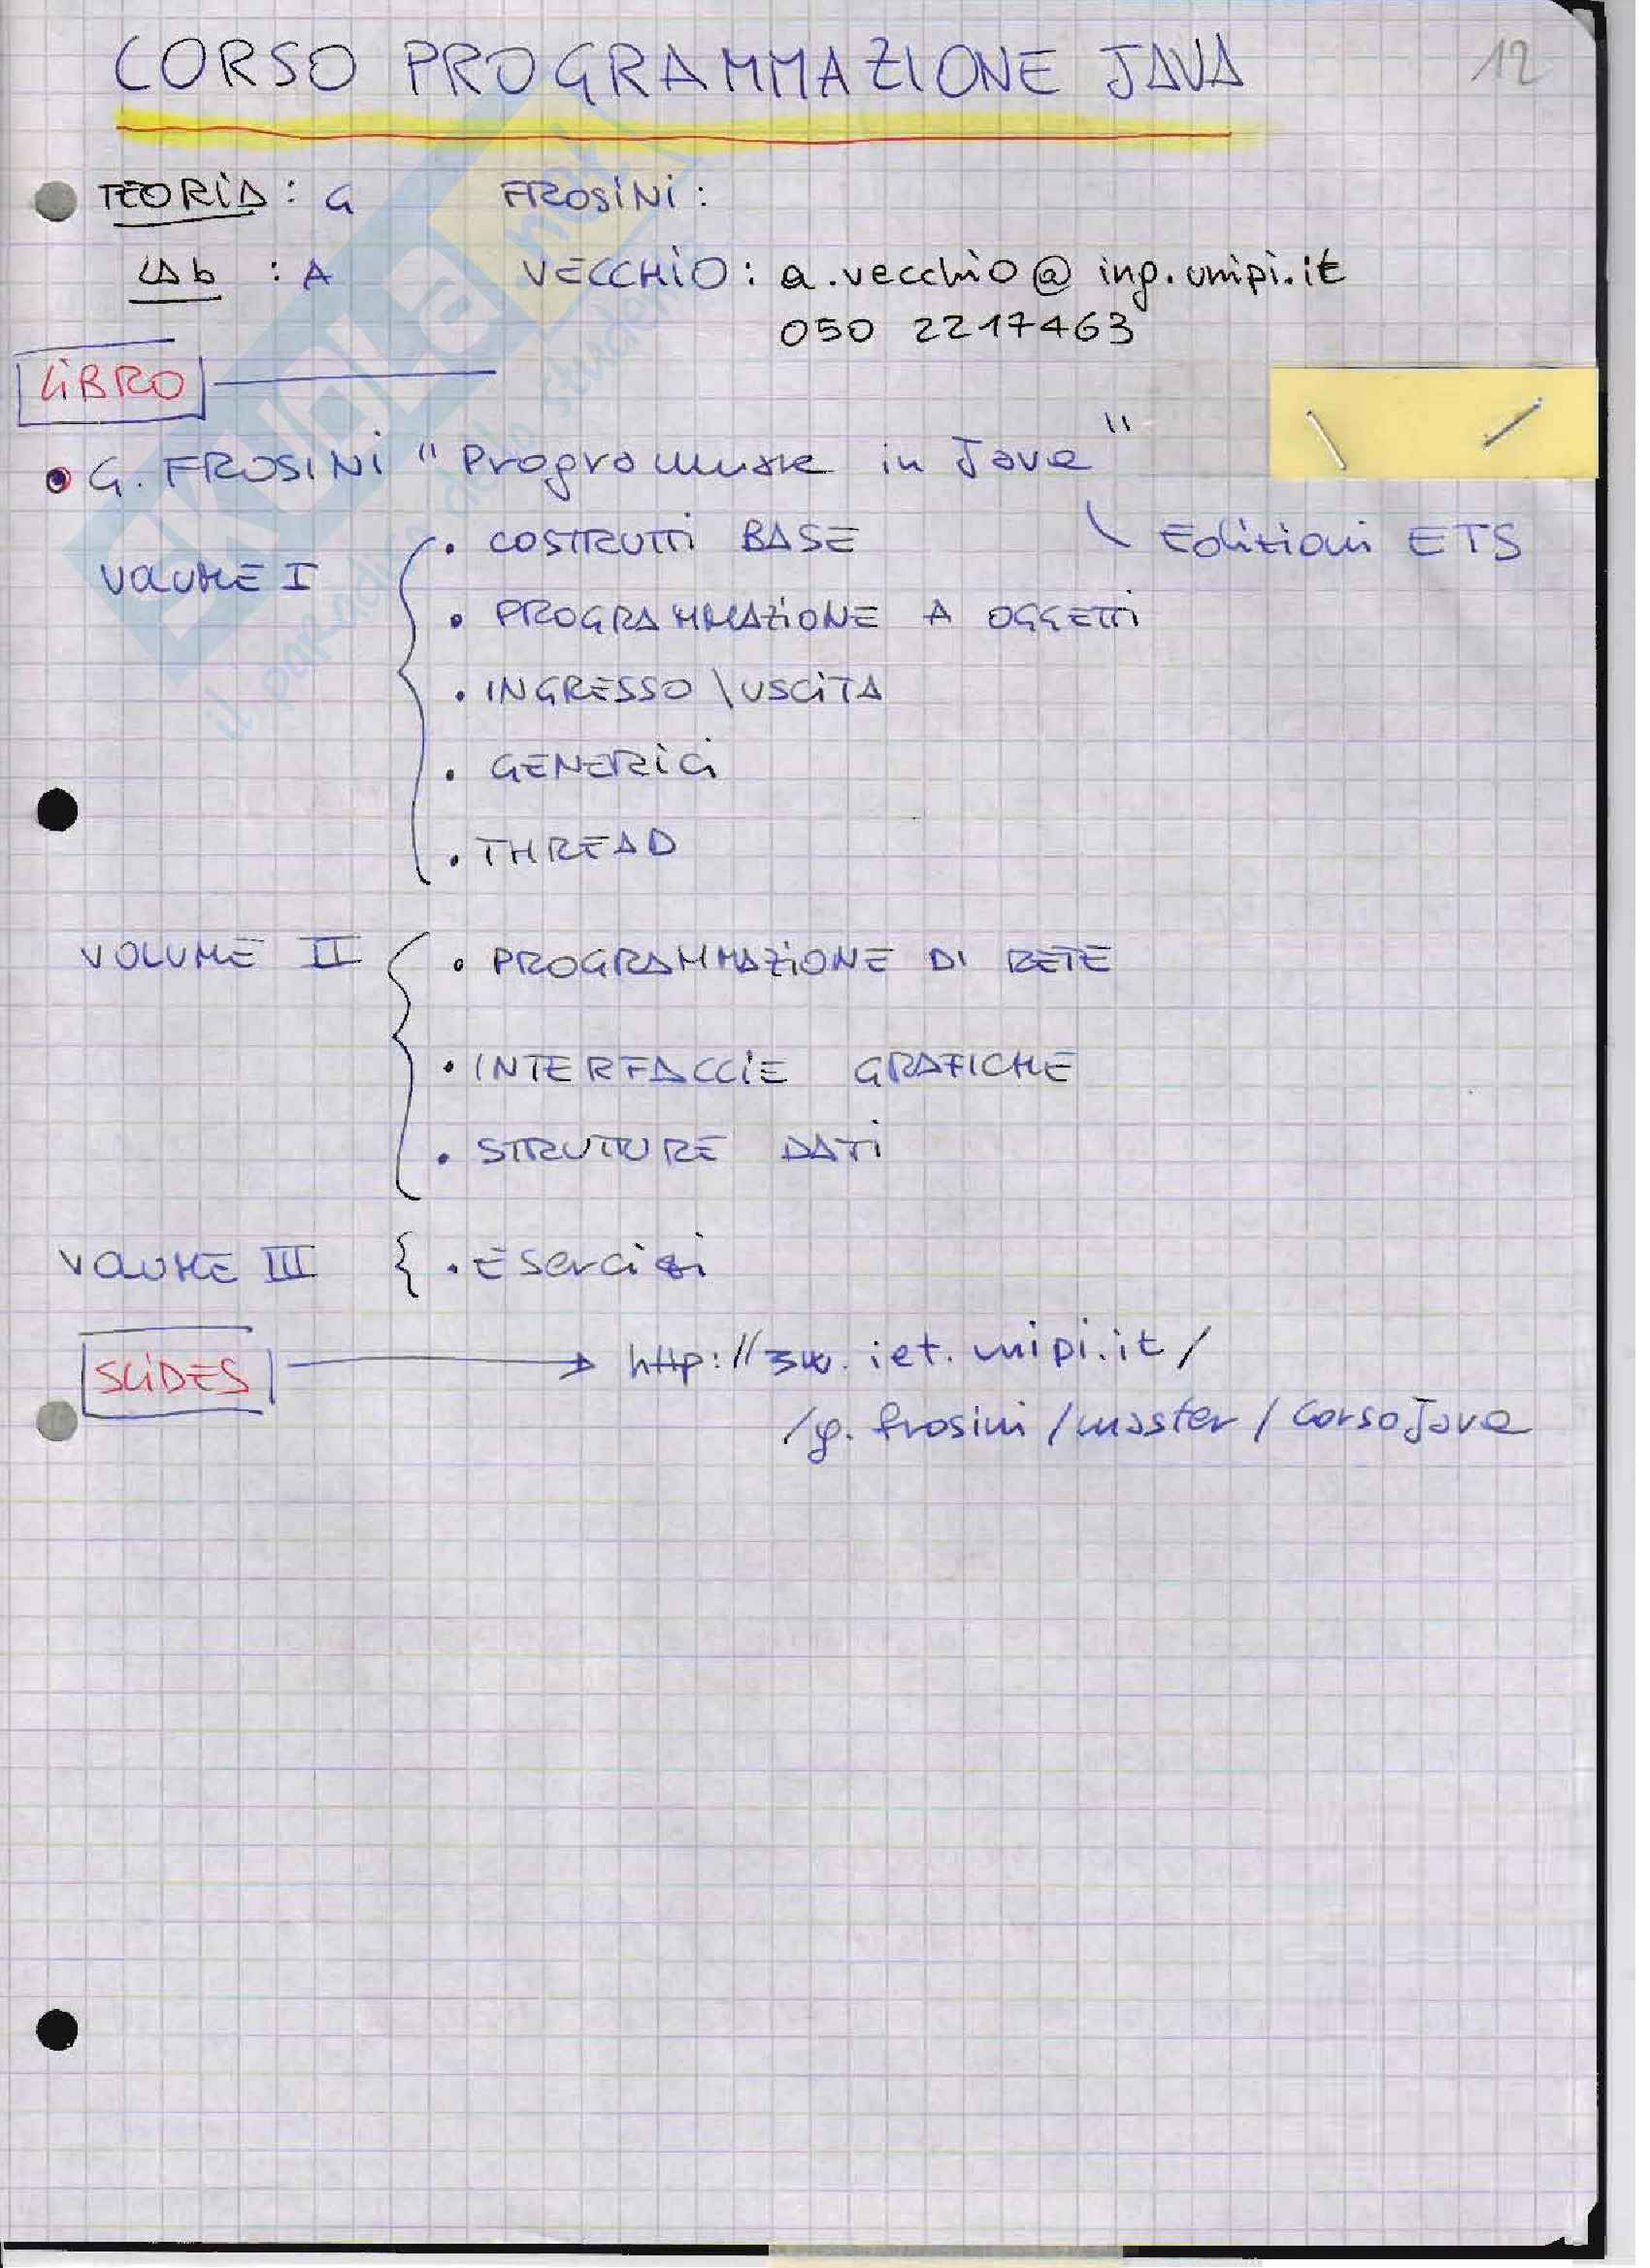 CORSO PROGRAMMAZIONE JAVA
12
TEORIA : G FROSINI :
LAb : A VECCHIO : a.vecchio@ing.unipi.it
050 2217463
LIBRO
• G. FROSINI "Programmare in Java"
\ Edizioni ETS
VOLUME I
• COSTRUTTI BASE
• PROGRAMMAZIONE A OGGETTI
• INGRESSO \ USCITA
• GENERICI
• THREAD
VOLUME II { • PROGRAMMAZIONE DI RETE
• INTERFACCIE GRAFICHE
• STRUTTURE DATI
VOLUME III { • Esercizi
SLIDES → http://3w.iet.unipi.it/
/g.frosini/master/corsoJava
SKUOLa.net
il paradiso dello studente